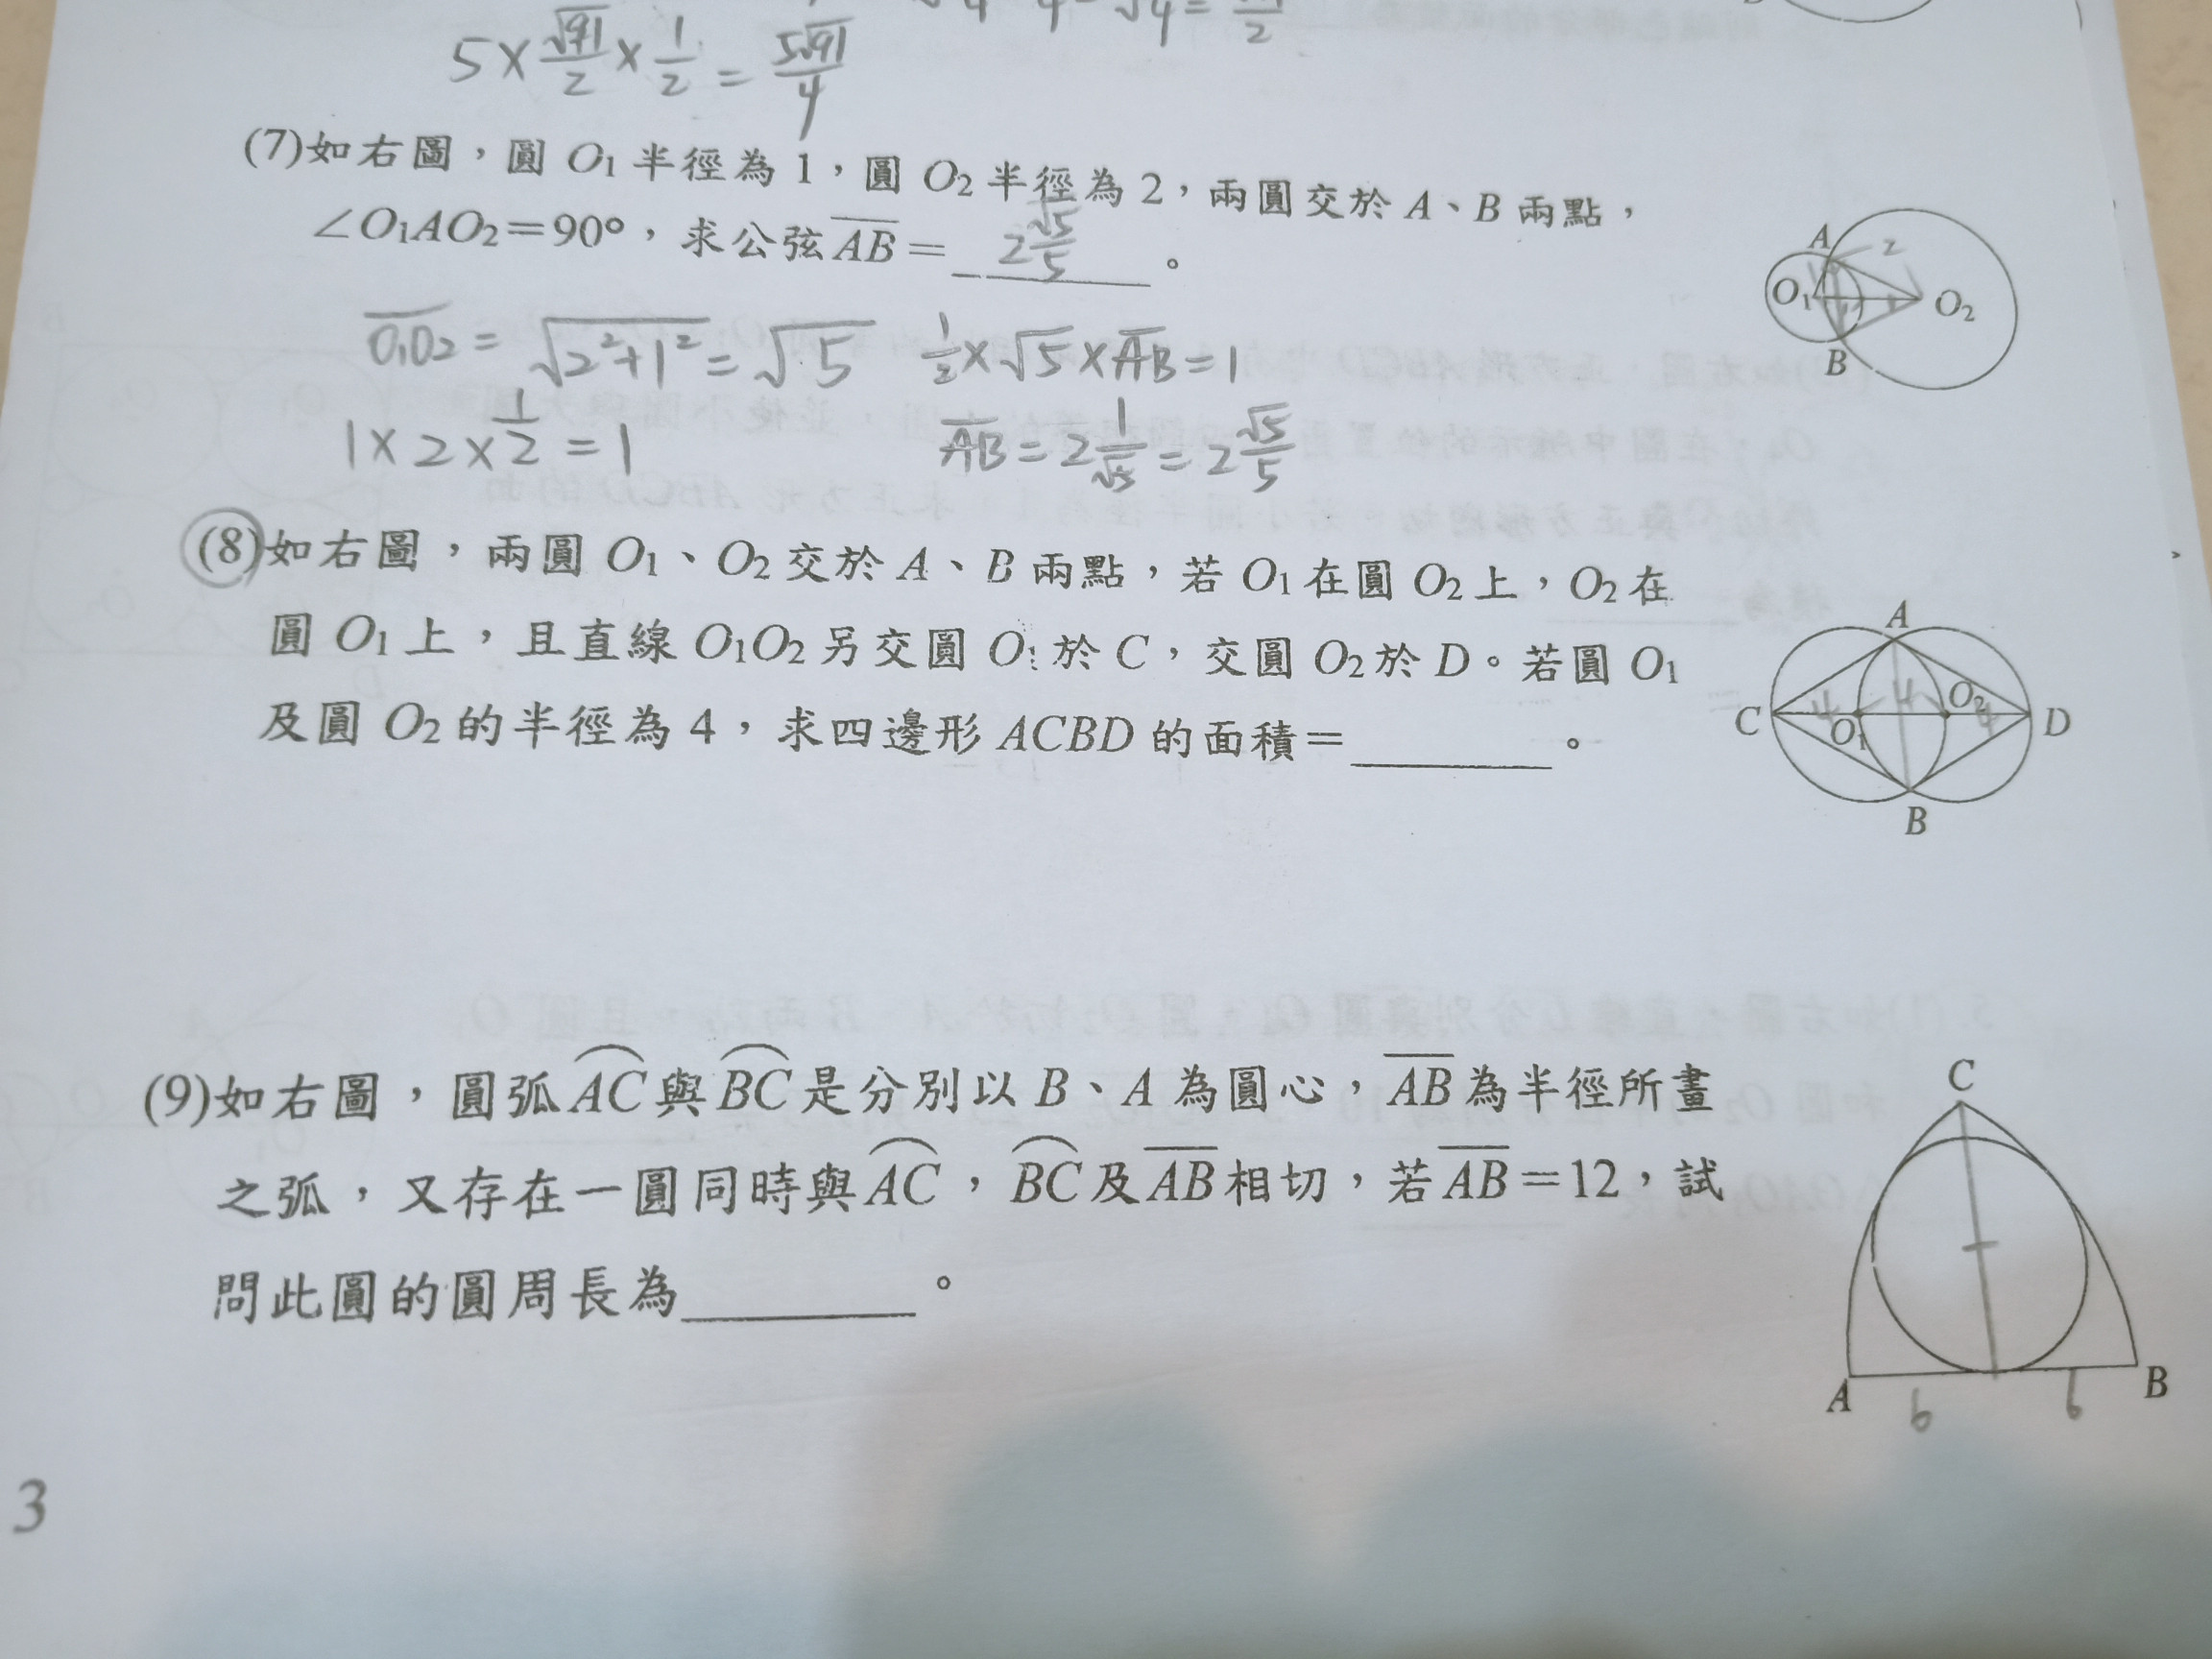 5×√91/2×1/2=5√91/4
(7)如右圖，圓 O1 半徑為 1，圓 O2 半徑為 2，兩圓交於 A、B 兩點，
∠O1AO2=90°，求公弦AB= 2√5/5 。
O1O2=√2²+1²=√5 1/2×√5×AB=1
1×2×1/2=1 AB=2 1/√5=2 √5/5
A 2 O1 O2 B
(8)如右圖，兩圓 O1、O2 交於 A、B 兩點，若 O1 在圓 O2 上，O2 在
圓 O1 上，且直線 O1O2 另交圓 O1 於 C，交圓 O2 於 D。若圓 O1
及圓 O2 的半徑為 4，求四邊形 ACBD 的面積=________。
A
C 4 O1 4 O2 4 D
B
(9)如右圖，圓弧AC與BC是分別以 B、A 為圓心，AB為半徑所畫
之弧，又存在一圓同時與AC，BC及AB相切，若AB=12，試
問此圓的圓周長為________。
C
A 6 6 B
3